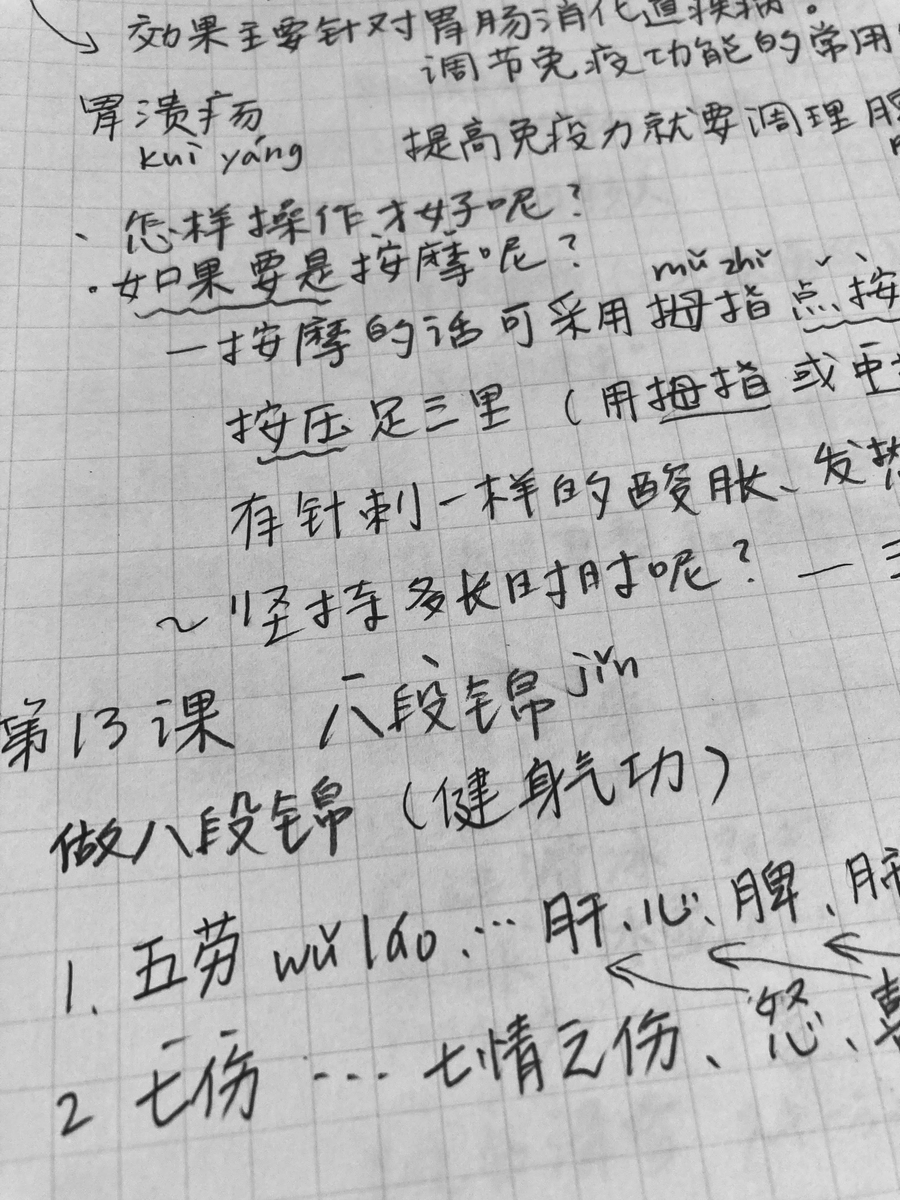 效果主要针对胃肠消化道疾病。
调节免疫功能的常用
胃溃疡
kuì yáng
提高免疫力就要调理脾
、怎样操作才好呢？
·如果要是按摩呢？
mǔ zhǐ
一按摩的话可采用拇指点按
按压足三里（用拇指或
有针刺一样的酸胀、发热
~坚持多长时间呢？一三
第13课 八段锦 jǐn
做八段锦（健身气功）
1. 五劳 wǔ láo … 肝、心、脾、肺
2 七伤 … 七情之伤、怒、喜